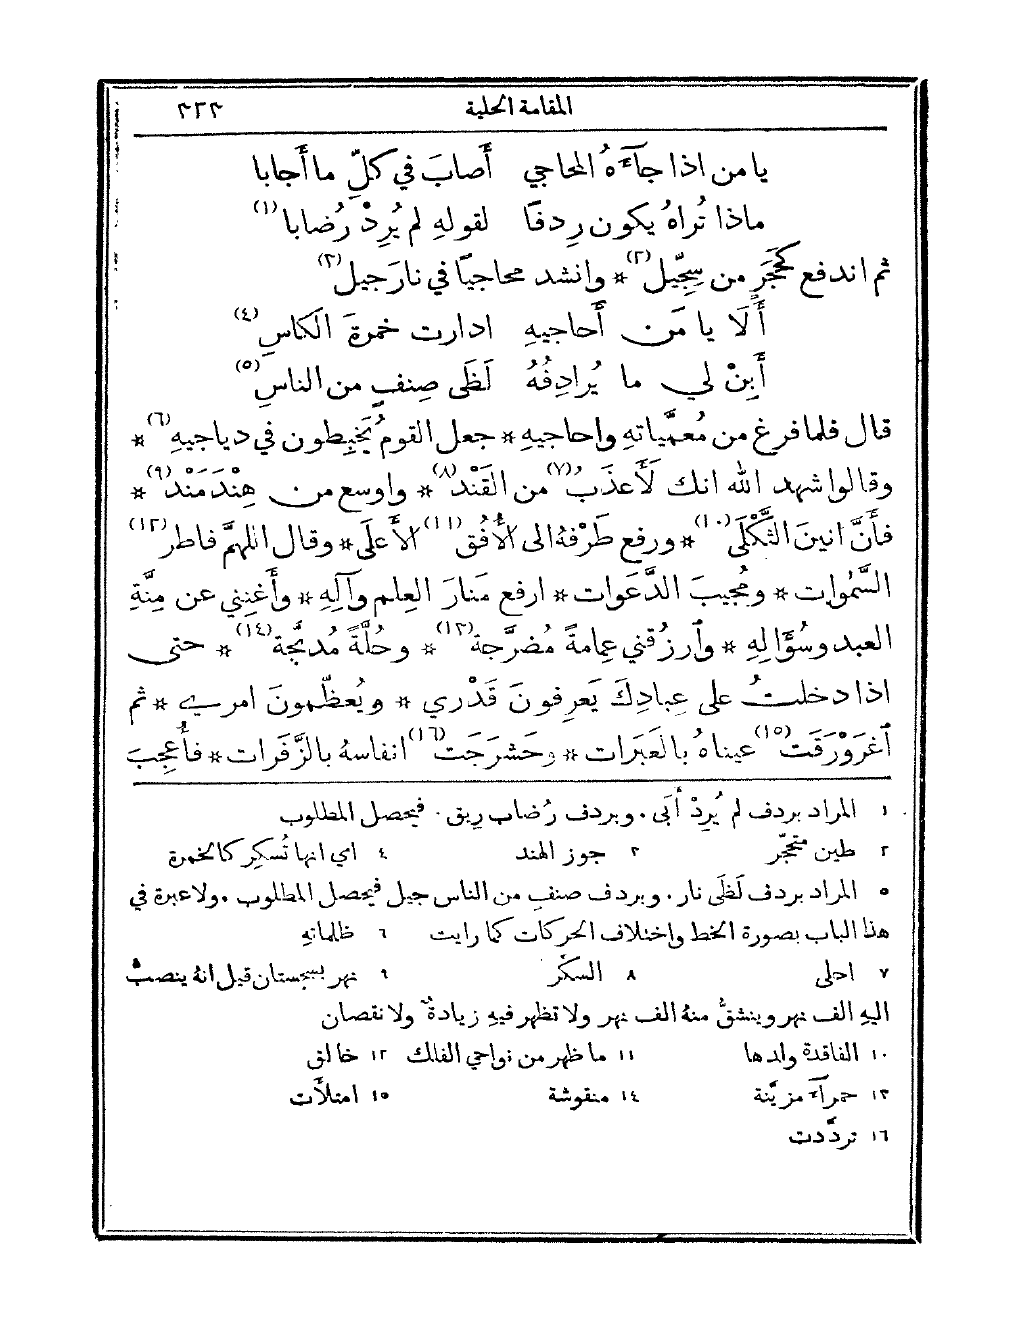 المقامة الحلبية ٣٢٣
يا من اذا جآءَهُ المحاجي أَصابَ في كلِّ ما أَجابا
ماذا تُراهُ يكون رِدفًا لقولهِ لم يُرِدْ رُضابا (١)
ثم اندفع كحَجَرٍ من سِجِّيل (٢) * وانشد محاجيًا في نارَجيل (٣)
أَلَا يا مَن أُحاجيهِ ادارت خمرةَ الكاسِ (٤)
أَبِنْ لي ما يُرادِفُهُ لَظَى صِنفٍ من الناسِ (٥)
قال فلما فرغ من مُعمَّياتهِ واحاجيهِ * جعل القوم يَخبِطون في دياجيهِ (٦) *
وقالوا شهد الله انك لَأَعذَبُ (٧) من القَنْد (٨) * واوسع من هِنْدَمَنْد (٩) *
فأَنَّ انينَ الثَّكْلَى (١٠) * ورفع طَرْفهُ الى الأُفُق (١١) الأَعلَى * وقال اللهمَّ فاطر (١٢)
السَّمٰوات * ومُجيبَ الدَّعَوات * ارفع مَنارَ العِلم وآلِهِ * وأَغنِني عن مِنَّةِ
العبد وسُؤَالِهِ * وٱرزُقني عِمامةً مُضرَّجة (١٣) * وحُلَّةً مُدبَّجة (١٤) * حتى
اذا دخلتُ على عِبادِكَ يَعرِفونَ قَدْري * ويُعظِّمونَ امري * ثم
ٱغرَوْرَقَت (١٥) عيناهُ بالعَبَرات * وحَشرَجَت (١٦) انفاسهُ بالزَّفَرات * فأُعجِبَ
١ المراد بردف لم يُرِدْ أَبَى . وبردف رُضاب ريق . فيحصل المطلوب
٢ طين متحجّر ٣ جوز الهند ٤ اي انها تُسكِر كالخمرة
٥ المراد بردف لَظَى نار . وبردف صنفٍ من الناس جيل فيحصل المطلوب . ولا عبرة في
هذا الباب بصورة الخط واختلاف الحركات كما رايت ٦ ظلماتهِ
٧ احلى ٨ السكَّر ٩ نهر بسجستان قيل انهُ ينصبُّ
اليهِ الف نهر وينشقُّ منهُ الف نهر ولا تظهر فيهِ زيادةٌ ولا نقصان
١٠ الفاقدة ولدها ١١ ما ظهر من نواحي الفلك ١٢ خالق
١٣ حمرآء مزيَّنة ١٤ منقوشة ١٥ امتلأَت
١٦ تردَّدت